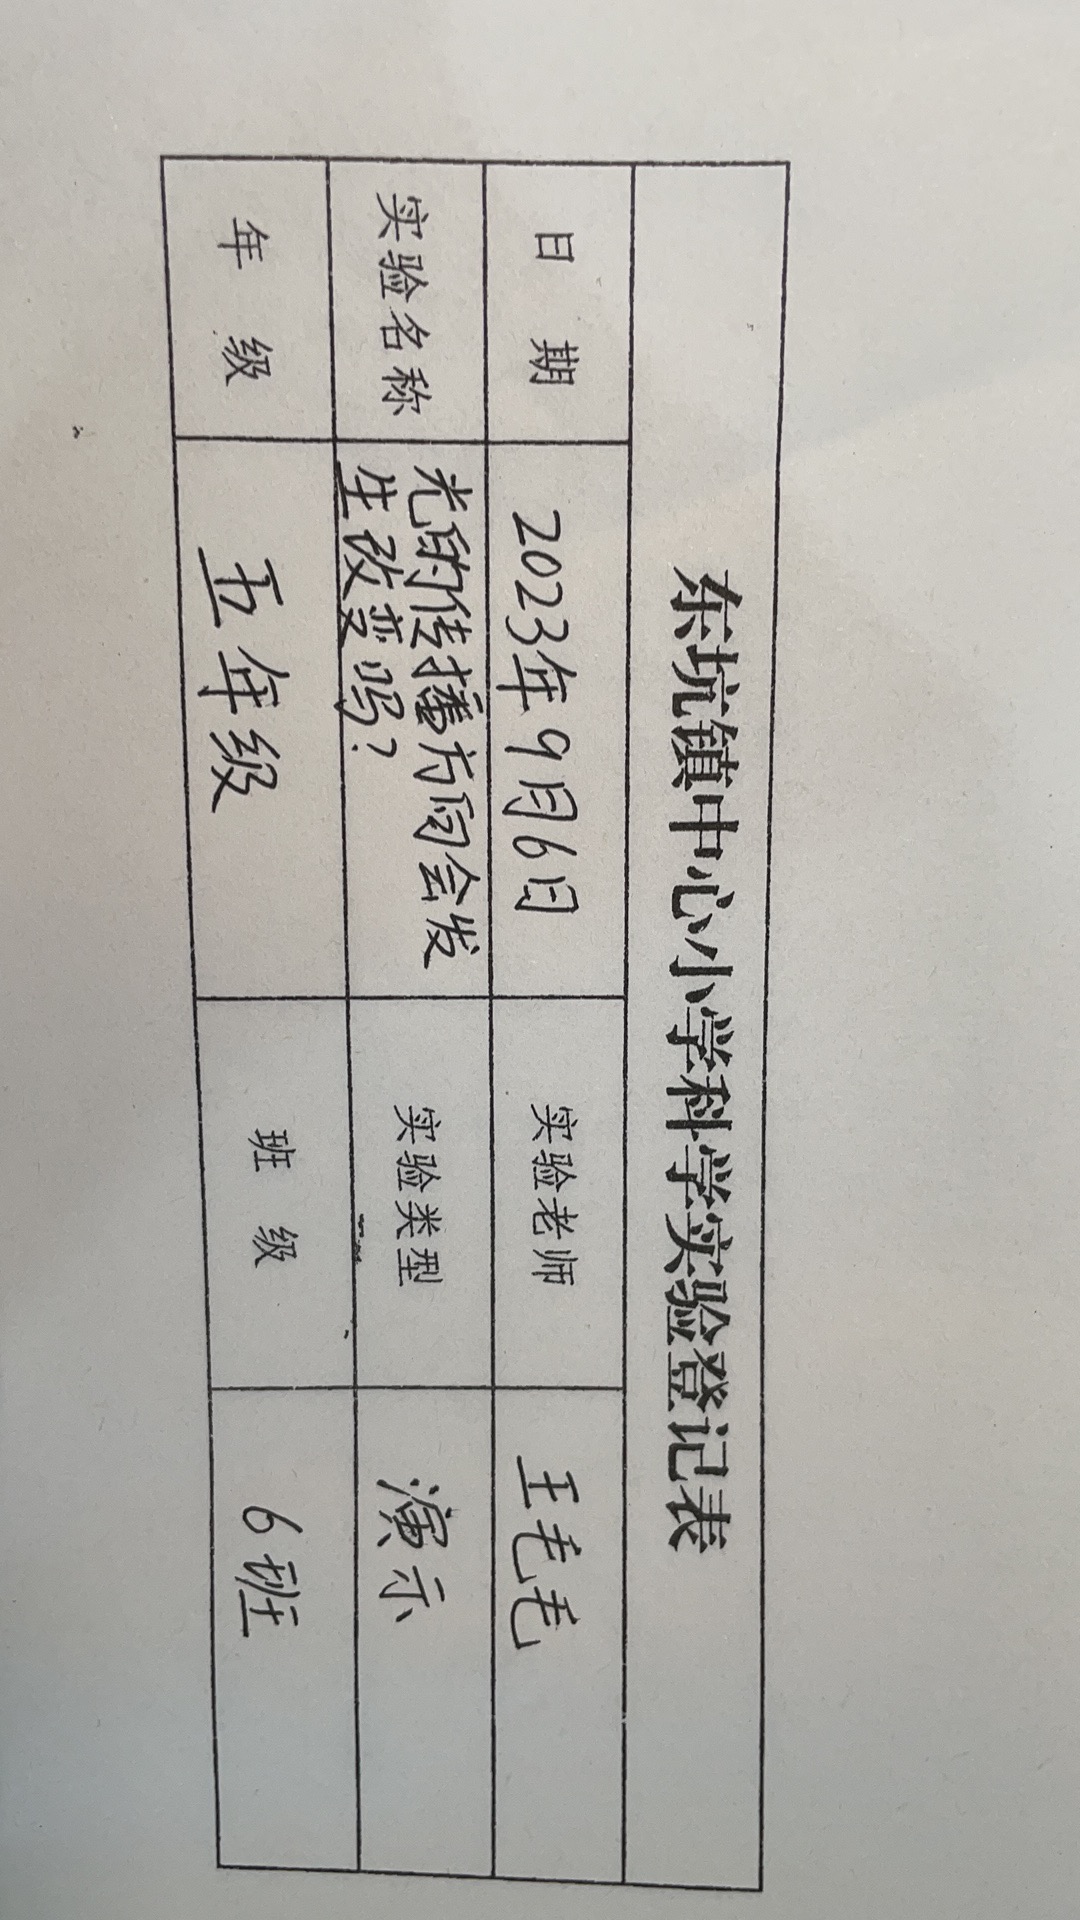 东坑镇中心小学科学实验登记表
日 期 2023年9月6日 实验老师 王毛毛
实验名称 光的传播方向会发 实验类型 演示
生改变吗?
年 级 五年级 班 级 6班